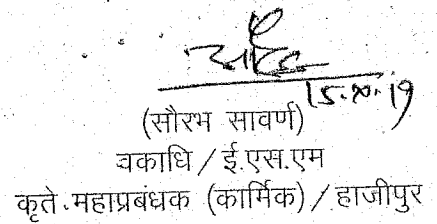 15.10.19
(सौरभ सावर्ण)
वकाधि / ई.एस.एम
कृते.महाप्रबंधक (कार्मिक) / हाजीपुर